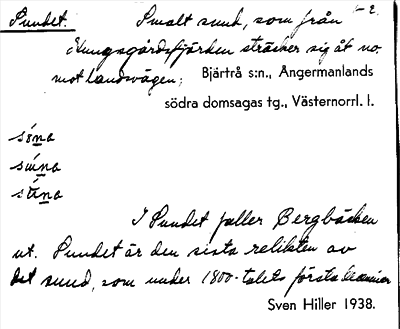 Sundet. Smalt sund, som från 1-2.
Kungsgårdsfjärden sträcker sig åt no
mot landsvägen; Bjärtrå s:n., Ångermanlands
södra domsagas tg., Västernorrl. l.
I Sundet faller Bergbäcken
ut. Sundet är den sista relikten av
det sund, som under 1800-talets första decennier
Sven Hiller 1938.